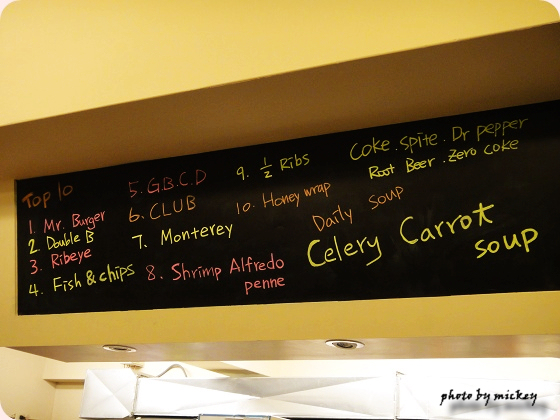 Top 10
1. Mr. Burger
2 Double B
3. Ribeye
4. Fish & chips
5. G.B.C.D
6. CLUB
7. Monterey
8. Shrimp Alfredo
penne
9. 1/2 Ribs
10. Honey wrap
Coke. spite. Dr pepper
Root Beer. Zero coke
Daily soup
Celery Carrot
soup
photo by mickey